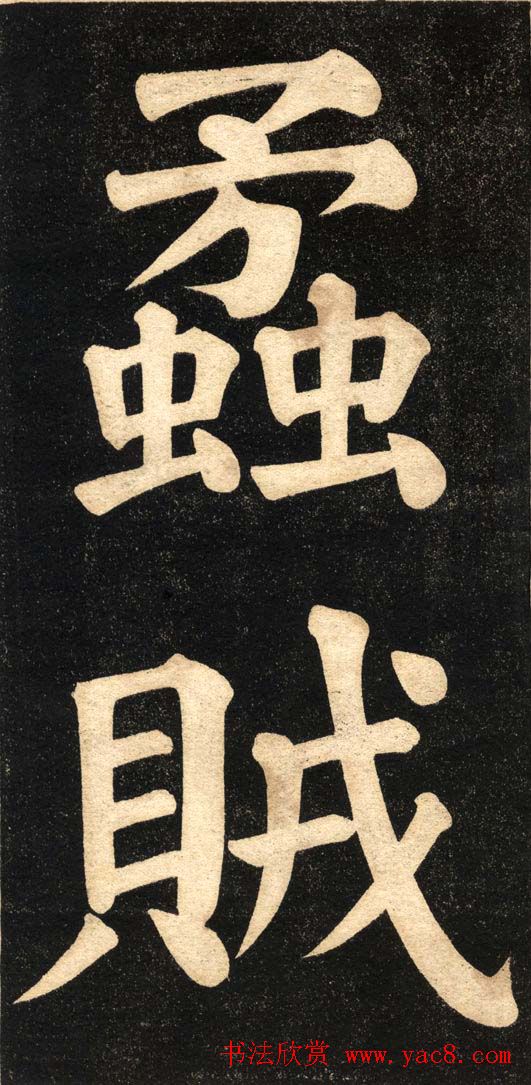 蟊
賊
书法欣赏 www.yac8.com